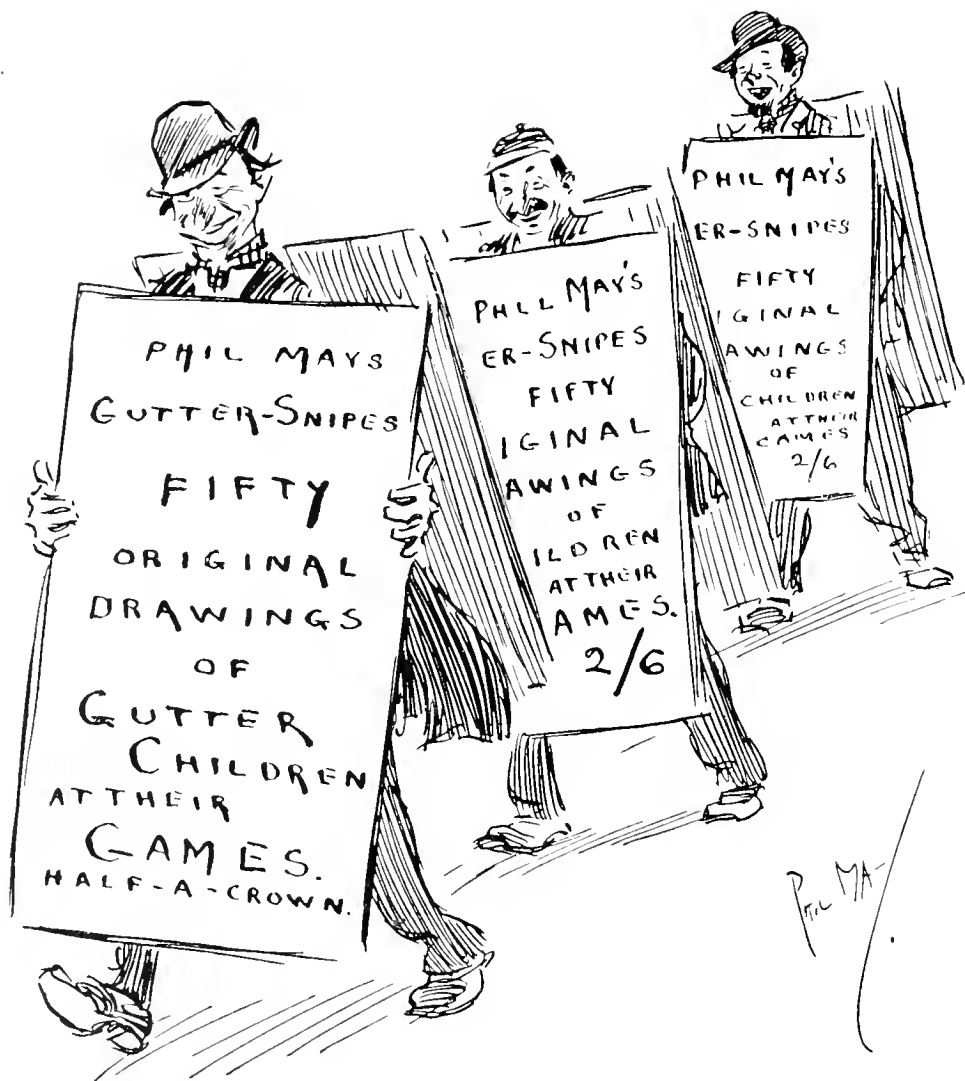 PHIL MAYS
GUTTER-SNIPES
FIFTY
ORIGINAL
DRAWINGS
OF
GUTTER
CHILDREN
AT THEIR
GAMES.
HALF-A-CROWN.
PHIL MAY'S
ER-SNIPES
FIFTY
IGINAL
AWINGS
OF
ILDREN
AT THEIR
AMES.
2/6
PHIL MAY'S
ER-SNIPES
FIFTY
IGINAL
AWINGS
OF
CHILDREN
AT THEIR
GAMES
2/6
PHIL MAY.